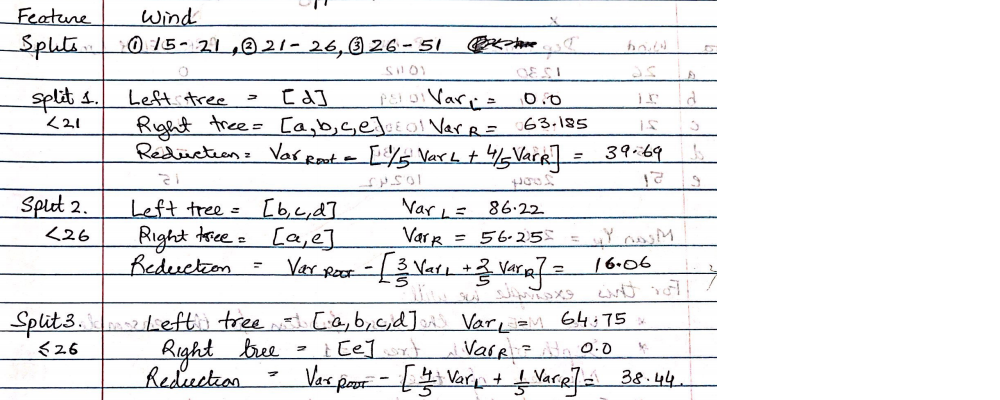 Feature Wind
Splits ① 15-21, ② 21-26, ③ 26-51
split 1. Left tree = [d] Var L = 0.0
<21 Right tree = [a,b,c,e] Var R = 63.185
Reduction = Var Root - [1/5 Var L + 4/5 Var R] = 39.69
Split 2. Left tree = [b,c,d] Var L = 86.22
<26 Right tree = [a,e] Var R = 56.25
Reduction = Var Root - [3/5 Var L + 2/5 Var R] = 16.06
Split 3. Left tree = [a,b,c,d] Var L = 64.75
≤26 Right tree = [e] Var R = 0.0
Reduction = Var Root - [4/5 Var L + 1/5 Var R] = 38.44.